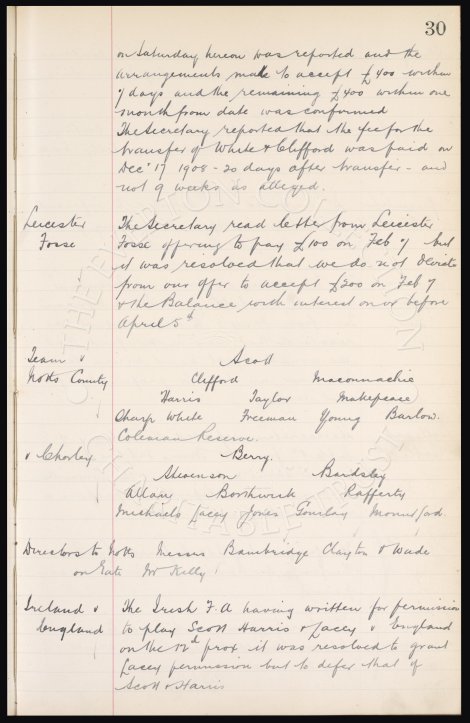 30
on Saturday hereon was reported and the
arrangements made to accept £400 within
7 days and the remaining £400 within one
month from date was confirmed
The Secretary reported that the fee for the
transfer of White & Clifford was paid on
Decr 17 1908 - 20 days after transfer - and
not 9 weeks as alleged.
Leicester The Secretary read letter from Leicester
Fosse Fosse offering to pay £100 on Feb 7 but
it was resolved that we do not deviate
from our offer to accept £200 on Feb 7
& the Balance with interest on or before
April 5th
Team v Scott
Notts County Clifford Maconnachie
Harris Taylor Makepeace
Sharp White Freeman Young Barlow.
Coleman Reserve.
v Chorley Berry.
Stevenson Bardsley
Allan Borthwick Rafferty
Michaels Lacey Jones Gourlay Mountford.
Directors to Notts Messrs Bainbridge Clayton & Wade
on Gate Mr Kelly
Ireland v The Irish F.A having written for permission
England to play Scott Harris & Lacey v England
on the 12th prox it was resolved to grant
Lacey permission but to defer that of
Scott & Harris